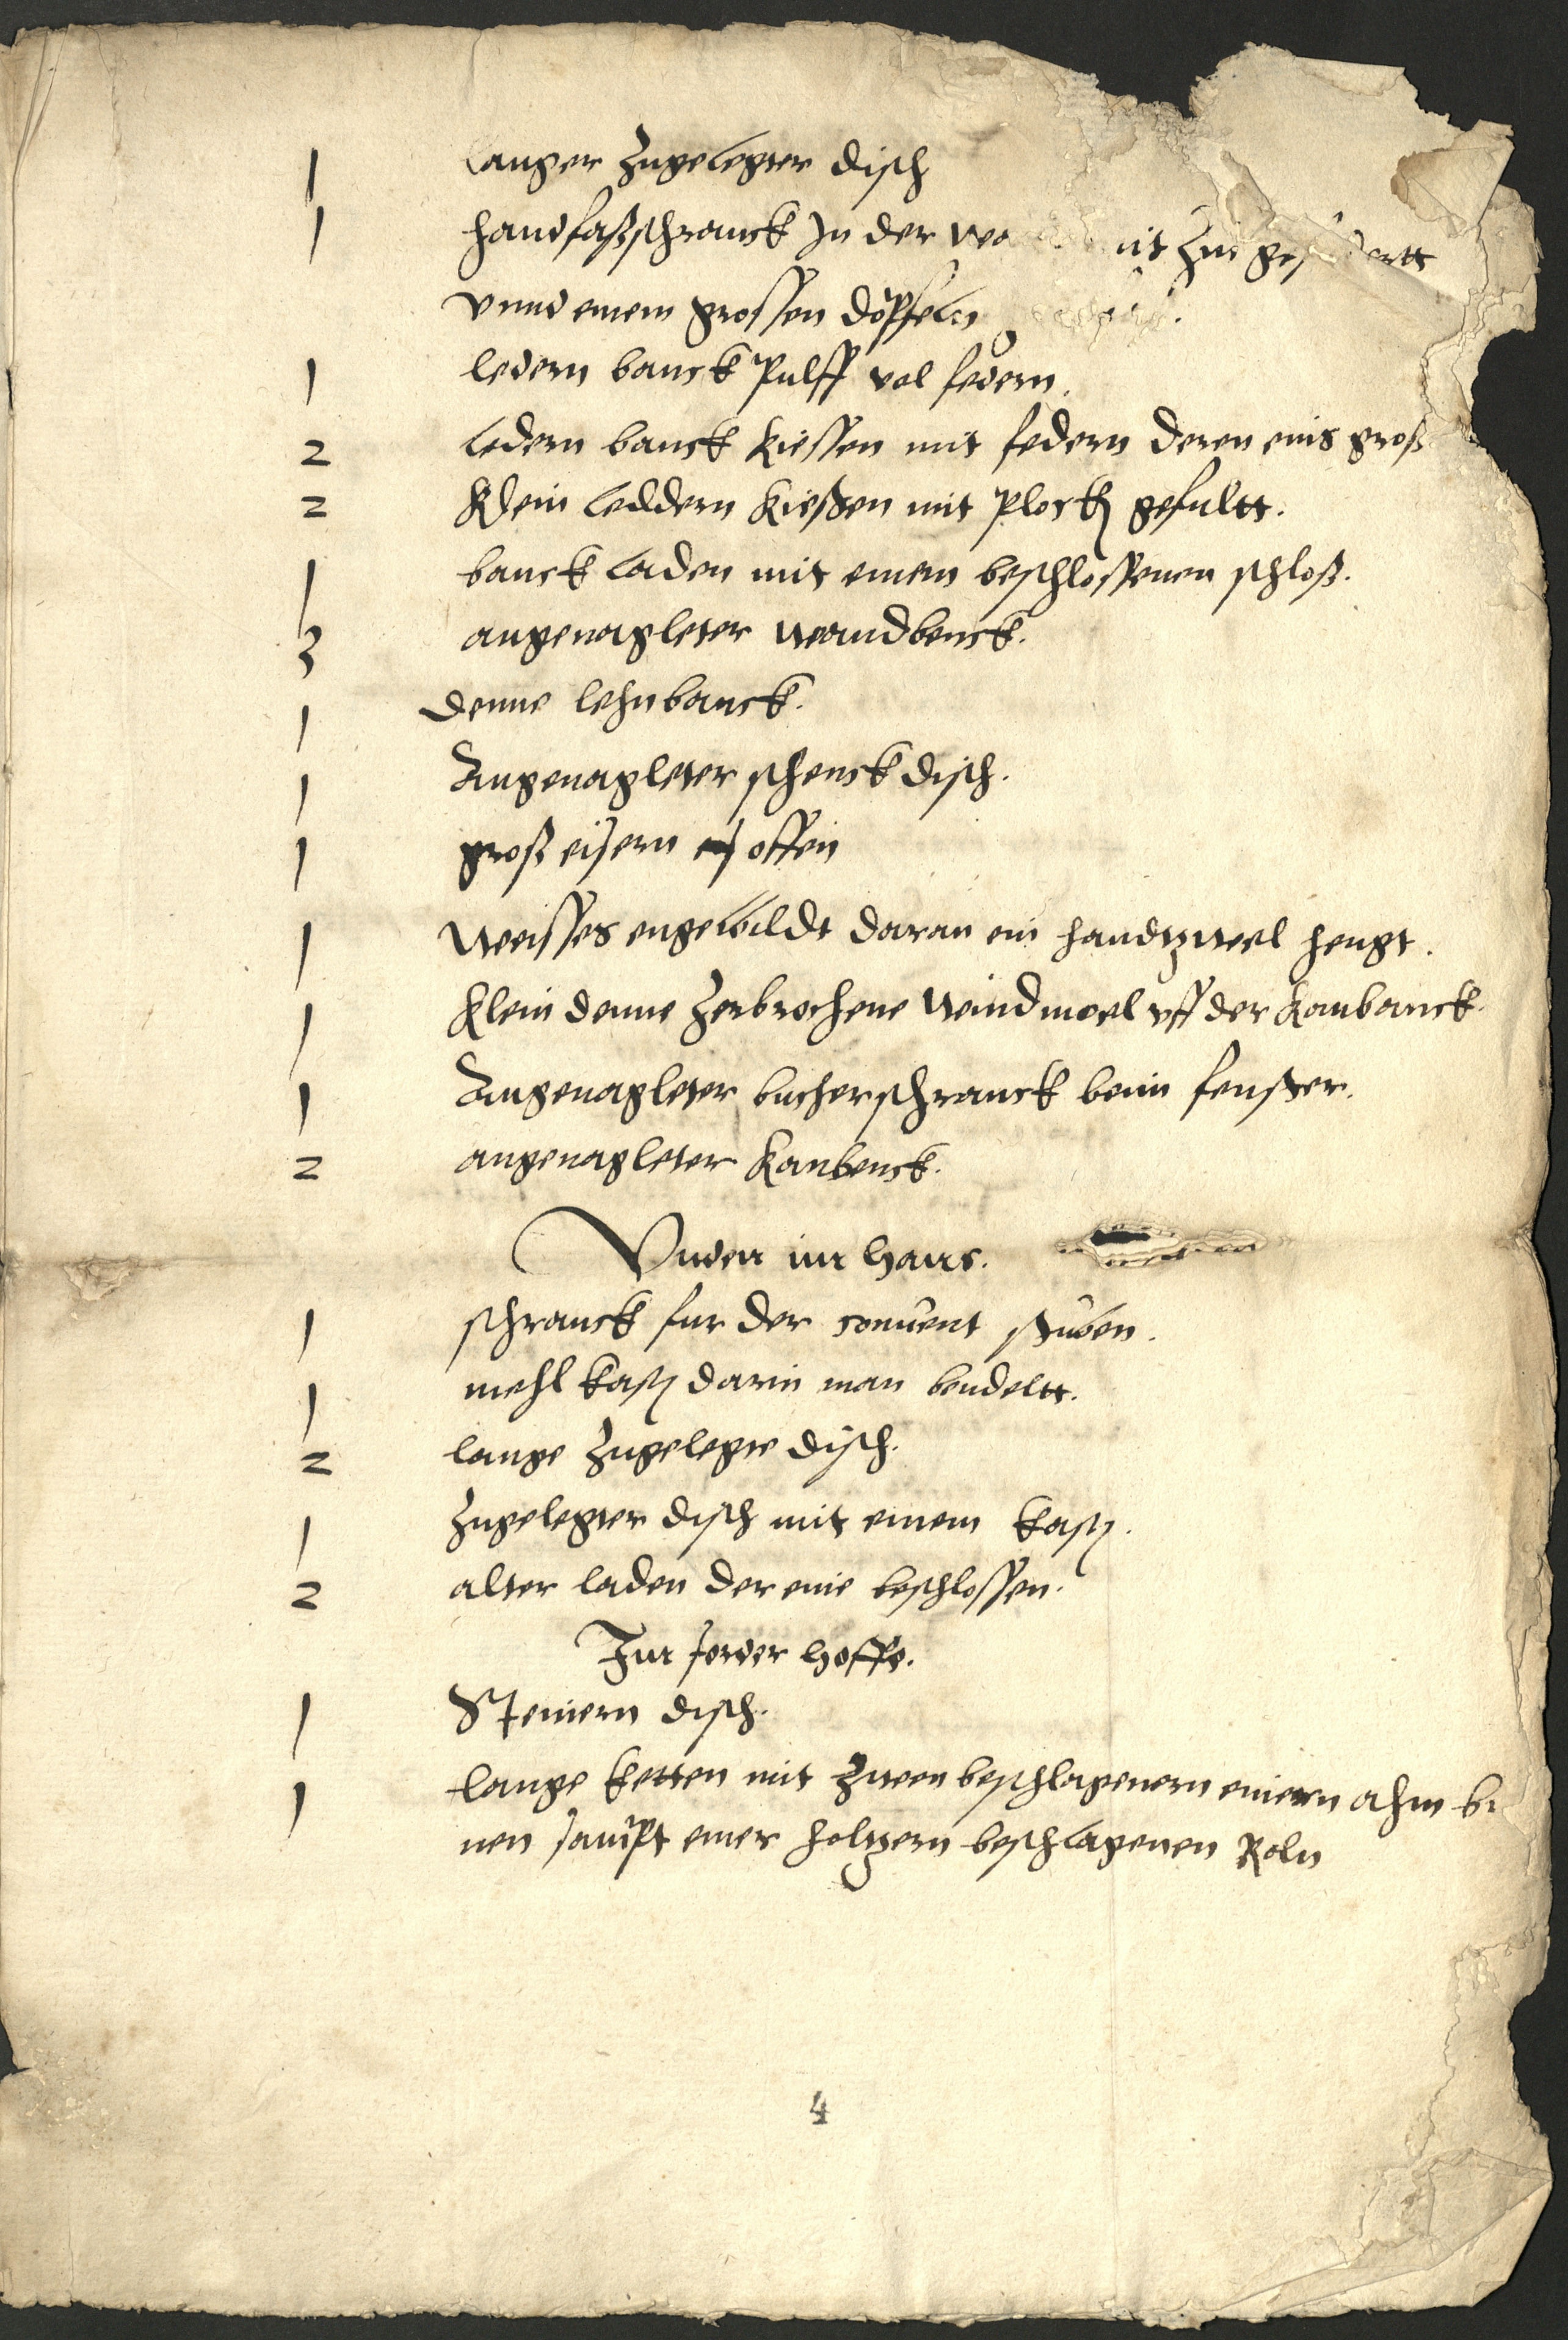 1 langer zugelegter disch
1 handfaßschranck Jn der mit Zin
vnnd einem grossen döpfeln
1 ledern banck Pulff vol federn.
2 ledern banck Kiessen mit federn deren eins groß
2 Klein leddern Kießen mit Plock gefultt.
1 banck laden mit einem beschlossenen schloß.
3 angenagleter wandbenck.
1 denne lehnbanck.
1 Angenagleter schenck disch.
1 groß eisern offen
1 Weisses engebildt daran ein handtzweel hengt.
1 Klein denne Zerbrochene Windmoel vff der Kanbanck.
1 Angenagleter bucherschranck beim fenster.
2 angenagleter Kanbenck.
Vnden im haus.
1 schranck fur der conuent stuben.
1 mehl kast darin man beudeltt.
2 lange Zugelegte disch.
1 Zugelegter disch mit einem kast.
2 alter laden der eine beschlossen.
Im forder hoffe.
1 Steinern disch.
1 lange ketten mit Zween beschlagenern eimern ahm br
nen sampt einer holtzern beschlagenen Roln
4